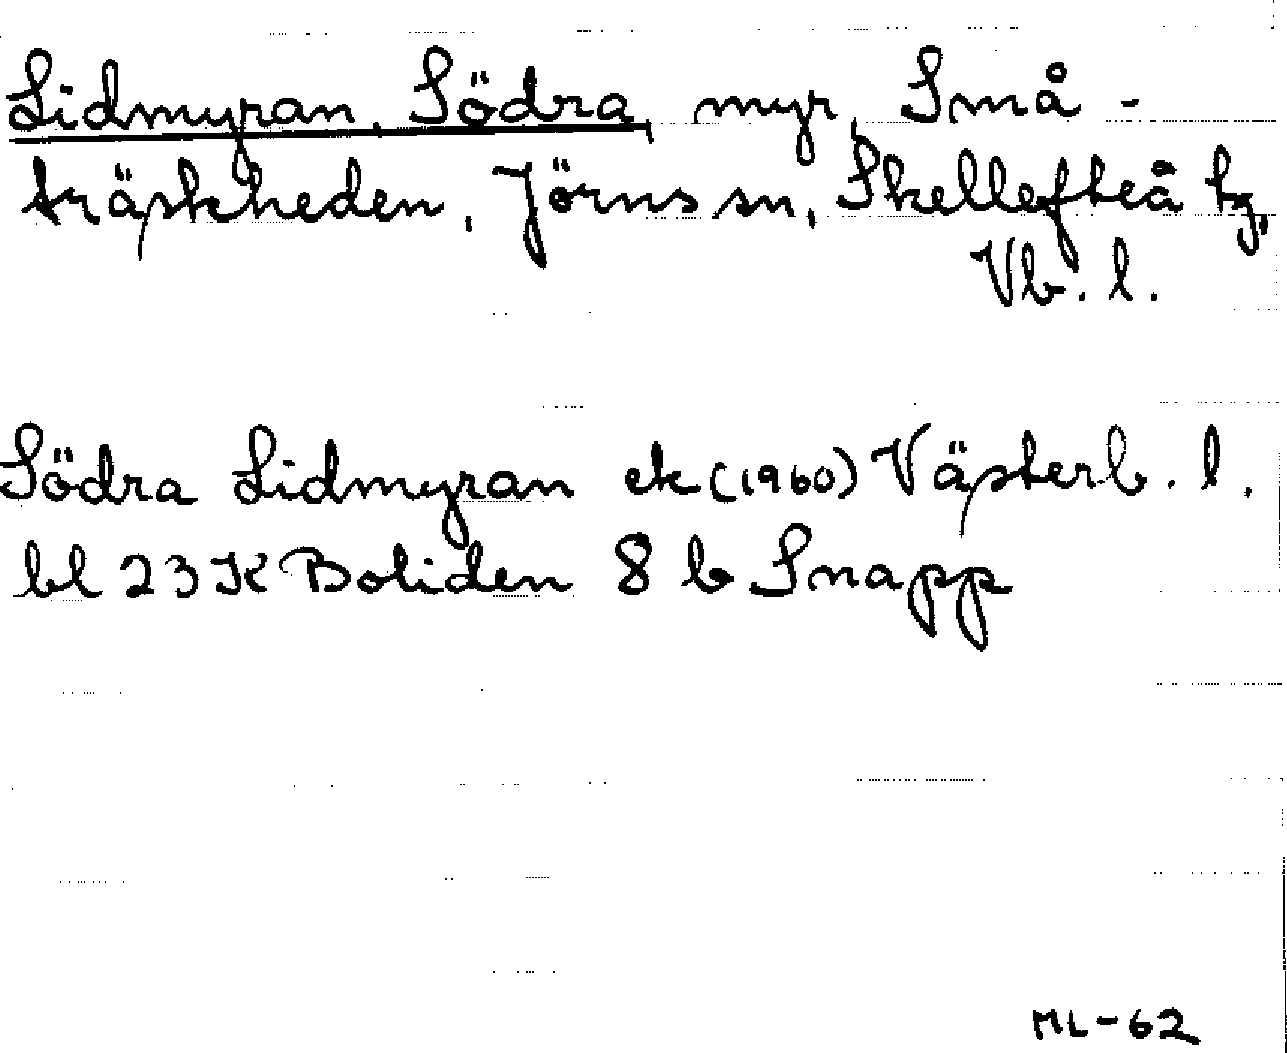 Lidmyran, Södra, myr, Små-
träskheden, Jörns sn, Skellefteå tg,
Vb. l.
Södra Lidmyran ek (1960) Västerb. l.
bl 23 K Boliden 8 b Snapp
ML-62